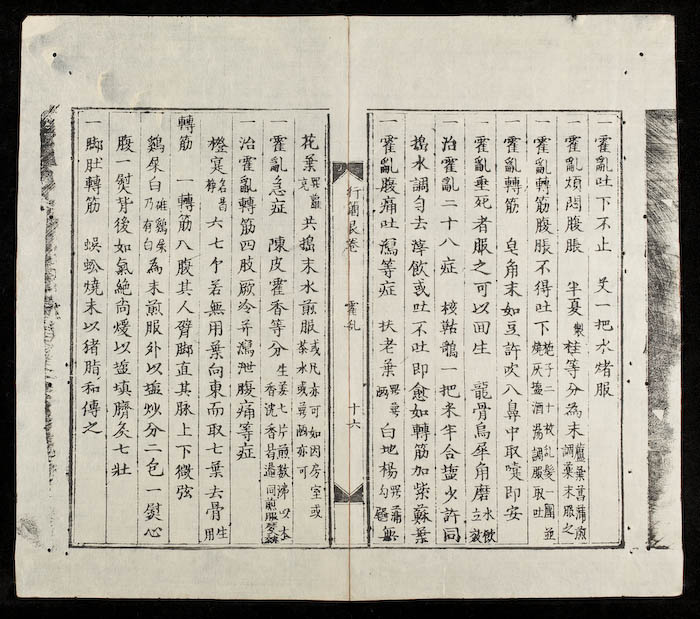 一霍亂吐下不止　艾一把水煮服
一霍亂煩悶腹脹　半夏製桂等分為末蘆葉菖蒲煎調藥末服之
一霍亂轉筋腹脹不得吐下梔子二十枚亂髮一團並燒灰塩酒湯調服取吐
一霍亂轉筋　皂角末如豆許吹入鼻中取嚏即安
一霍亂垂死者服之可以回生　龍骨烏犀角磨水飲立效
一治霍亂二十八症　一把米半合塩少許同
搗水調勻去滓飲或吐不吐即愈如轉筋加紫蘇葉
一霍亂腹痛吐瀉等症　扶老葉白地楊
行簡良卷　霍乱　十六
花葉　共搗末水煎服或尺亦可如因房室或茶水或亦可
一霍亂急症　陳皮霍香等分生姜七片煎數沸以木香沈香
一治霍亂轉筋四肢厥冷并瀉泄腹痛等症
六七个若無用葉向東而取七葉去骨生用
轉筋　一轉筋入腹其人臂脚直其脉上下微弦
鷄屎白雄鷄屎乃有白為末煎服外以塩炒分二包一熨心
腹一熨背後如氣絶尚煖以塩填臍灸七壯
一脚肚轉筋　蜈蚣燒末以猪脂和傅之